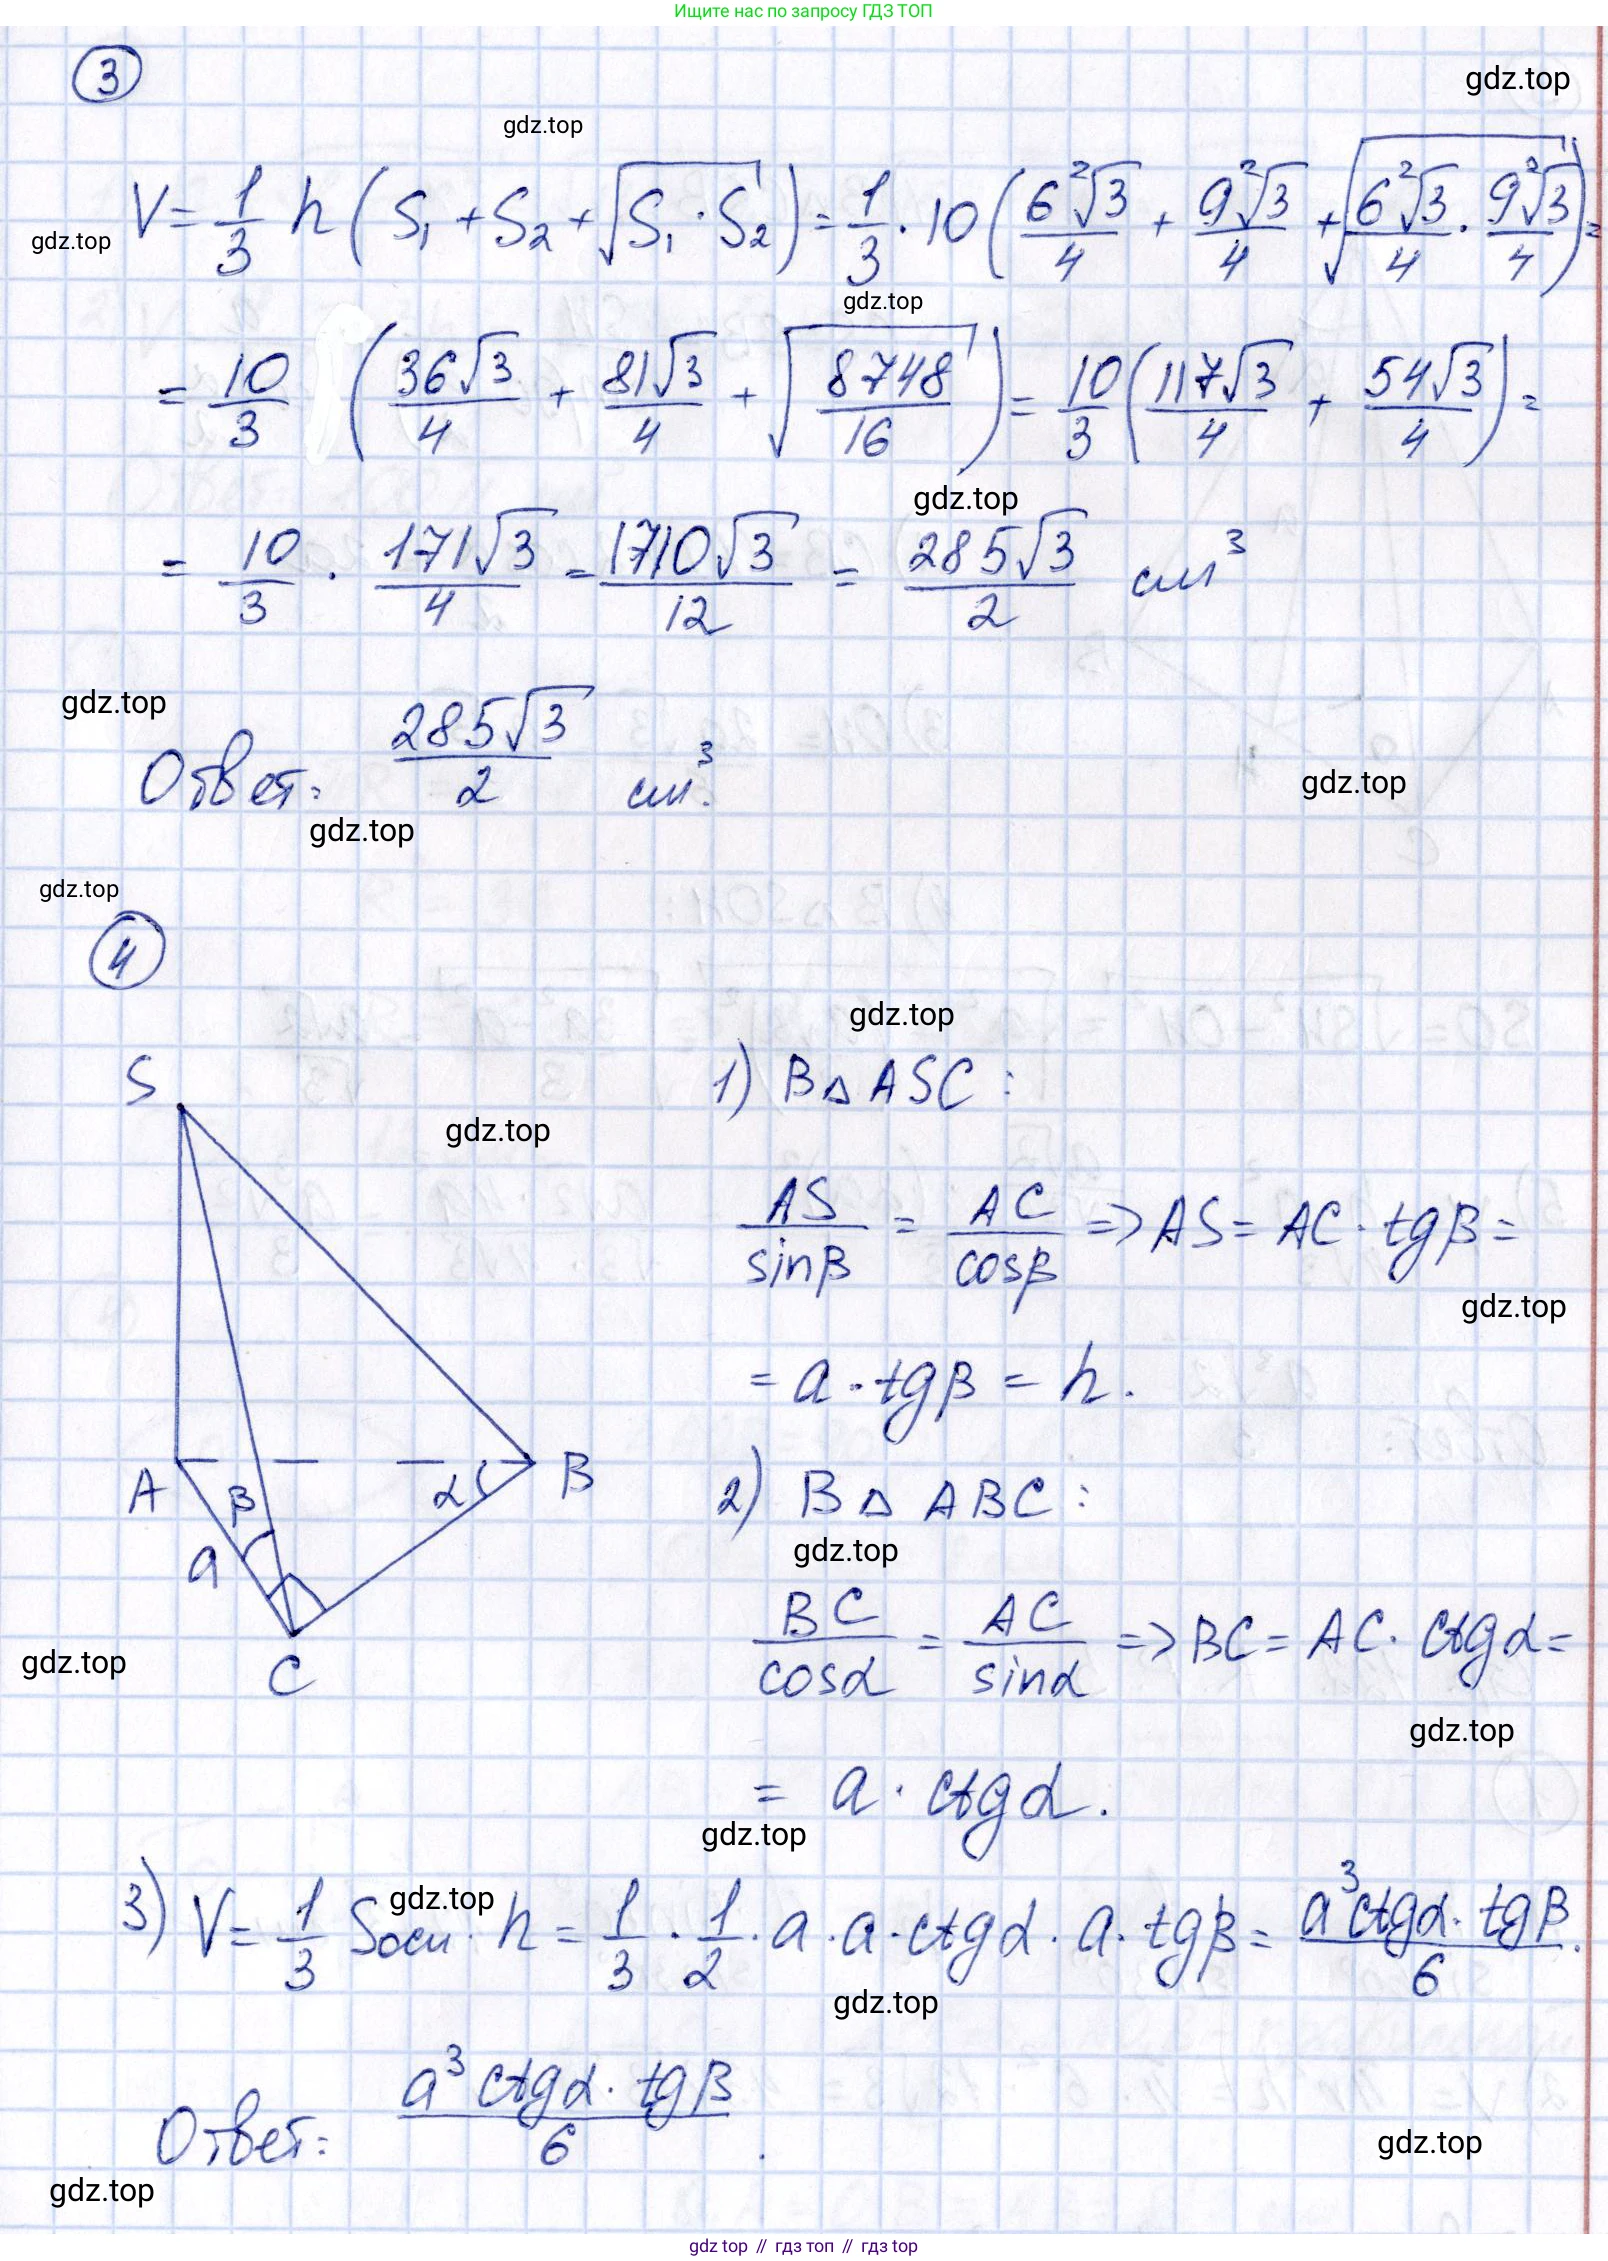 Ищите нас по запросу ГДЗ ТОП
3
gdz.top
gdz.top
V = 1/3 h (S₁ + S₂ + √(S₁ · S₂)) = 1/3 · 10 (6²√3/4 + 9²√3/4 + √(6²√3/4 · 9²√3/4)) =
gdz.top
gdz.top
= 10/3 (36√3/4 + 81√3/4 + √(8748/16)) = 10/3 (117√3/4 + 54√3/4) =
gdz.top
= 10/3 · 171√3/4 = 1710√3/12 = 285√3/2 см³
gdz.top
Ответ: 285√3/2 см³.
gdz.top
gdz.top
gdz.top
4
gdz.top
S
1) В △ ASC:
gdz.top
AS/sinβ = AC/cosβ => AS = AC · tgβ =
gdz.top
= a · tgβ = h.
A
β
α
B
a
C
2) В △ ABC:
gdz.top
BC/cosα = AC/sinα => BC = AC · ctgα =
gdz.top
gdz.top
= a · ctgα.
gdz.top
3) V = 1/3 Sосн · h = 1/3 · 1/2 · a · a · ctgα · a · tgβ = a³ctgα · tgβ/6.
gdz.top
gdz.top
Ответ: a³ ctgα · tgβ/6.
gdz.top
gdz.top
gdz top // гдз топ // гдз top